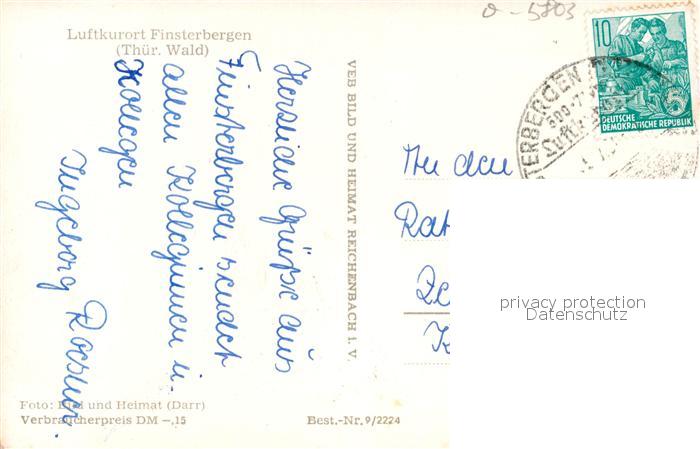 Luftkurort Finsterbergen
(Thür. Wald)
Herzliche Grüße aus
Finsterbergen sendet
allen Kolleginnen u.
Kollegen
Ingeborg
VEB BILD UND HEIMAT REICHENBACH i. V.
Foto: Bild und Heimat (Darr)
Verbraucherpreis DM –,15
Best.-Nr. 9/2224
0 - 5803
10
5
DEUTSCHE
DEMOKRATISCHE REPUBLIK
TERBERGEN
An den
Rat
Ze
K
privacy protection
Datenschutz